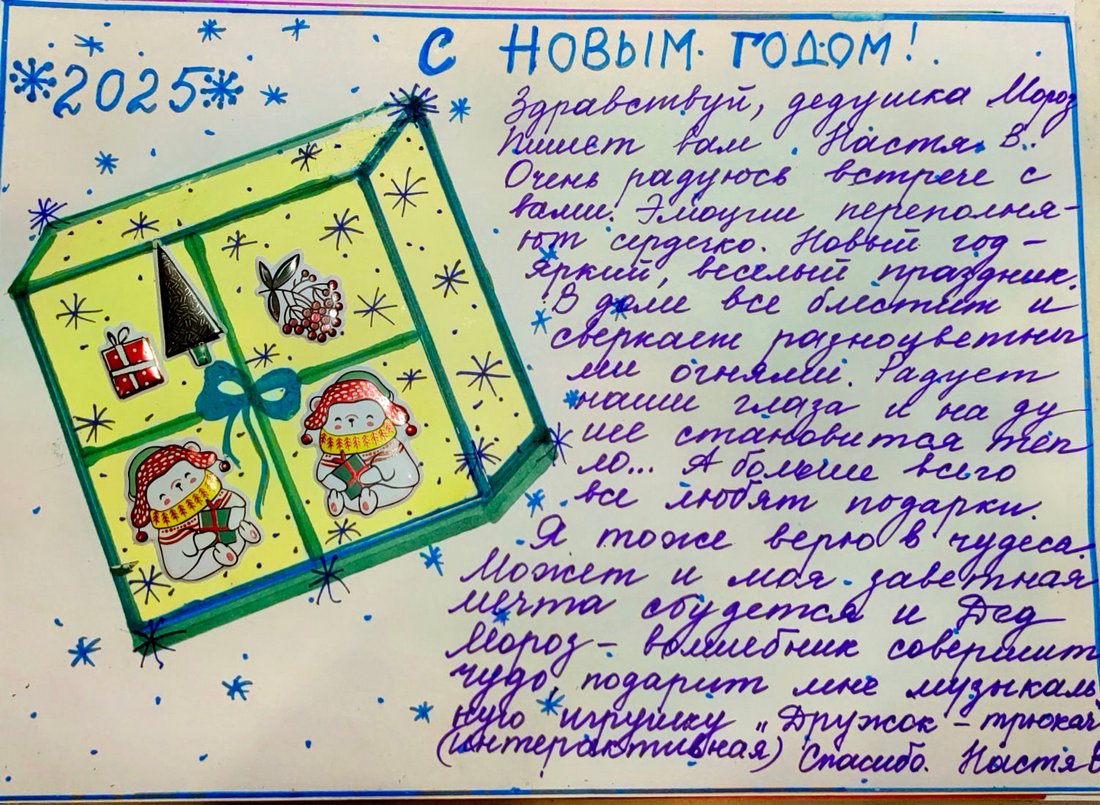 2025
С НОВЫМ ГОДОМ!
Здравствуй, дедушка Мороз
Пишет вам Настя В.
Очень радуюсь встрече с
вами. Эмоции переполня-
ют сердечко. Новый год -
яркий, веселый праздник.
В доме все блестит и
сверкает разноцветны
ми огнями. Радует
наши глаза и на ду
ше становится теп
ло... А больше всего
все любят подарки.
Я тоже верю в чудеса.
Может и моя заветная
мечта сбудется и Дед
Мороз - волшебник совершит
чудо, подарит мне музыкаль
ную игрушку „Дружок - трюкач
(интерактивная) Спасибо. Настя В